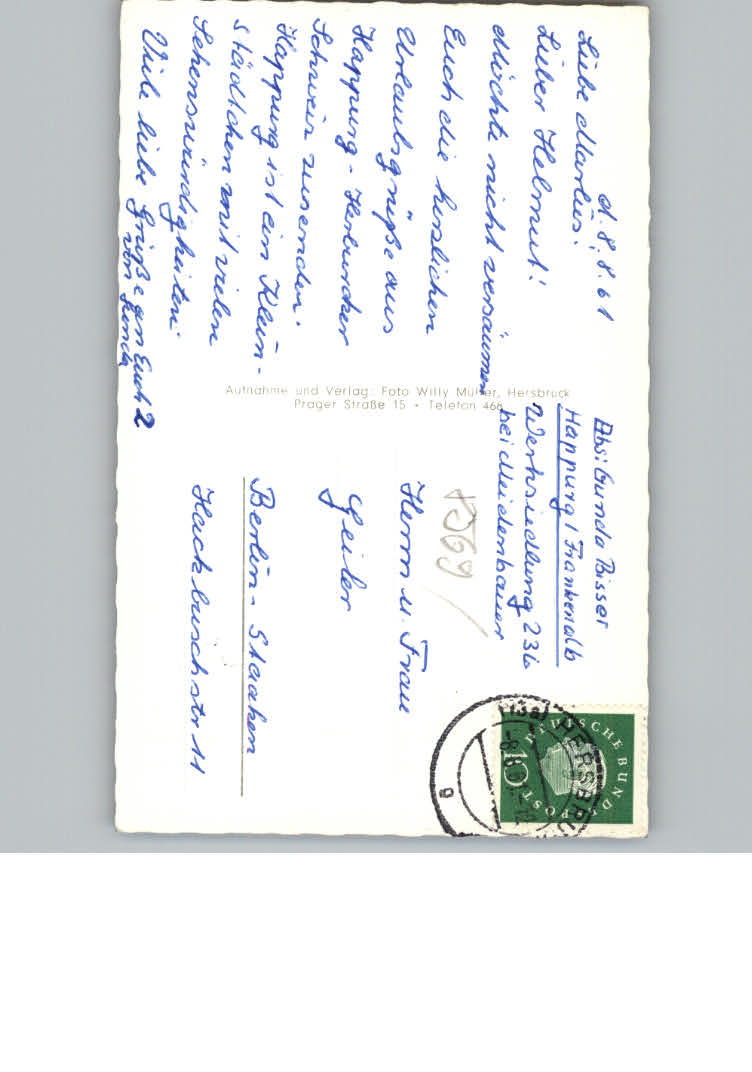 d. 8.8.61
Liebe Marlies!
Lieber Helmut!
Möchte nicht versäumen
Euch die herzlichen
Urlaubsgrüße aus
Happurg - Hersbrucker
Schweiz zusenden.
Happurg ist ein Klein-
städtchen mit vielen
Sehenswürdigkeiten.
Viele liebe Grüße an Euch 2
von
Aufnahme und Verlag: Foto Willy Müller, Hersbruck
Prager Straße 15 • Telefon 466
Abs: Gunda Bisser
Happurg / Frankenalb
Werksiedlung 23
bei Meidenbauer
1569
Herrn u. Frau
Geiler
Berlin - Staaken
Hackbuschstr 11
DEUTSCHE BUNDESPOST
10
(13a) HERSBRU
-8.8.
a